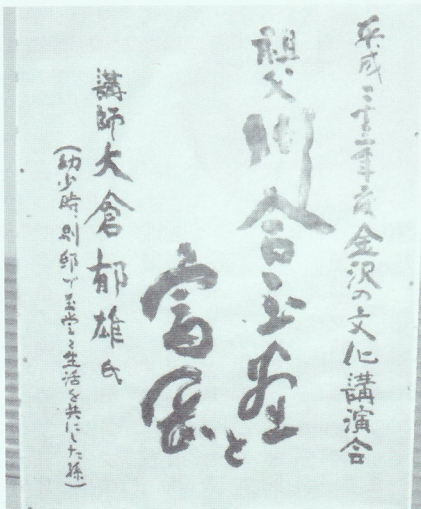 平成二十三年度金沢の文化講演会
祖父川合玉堂と
富岡
講師大倉郁雄氏
(幼少時、別邸で玉堂と生活を共にした孫)